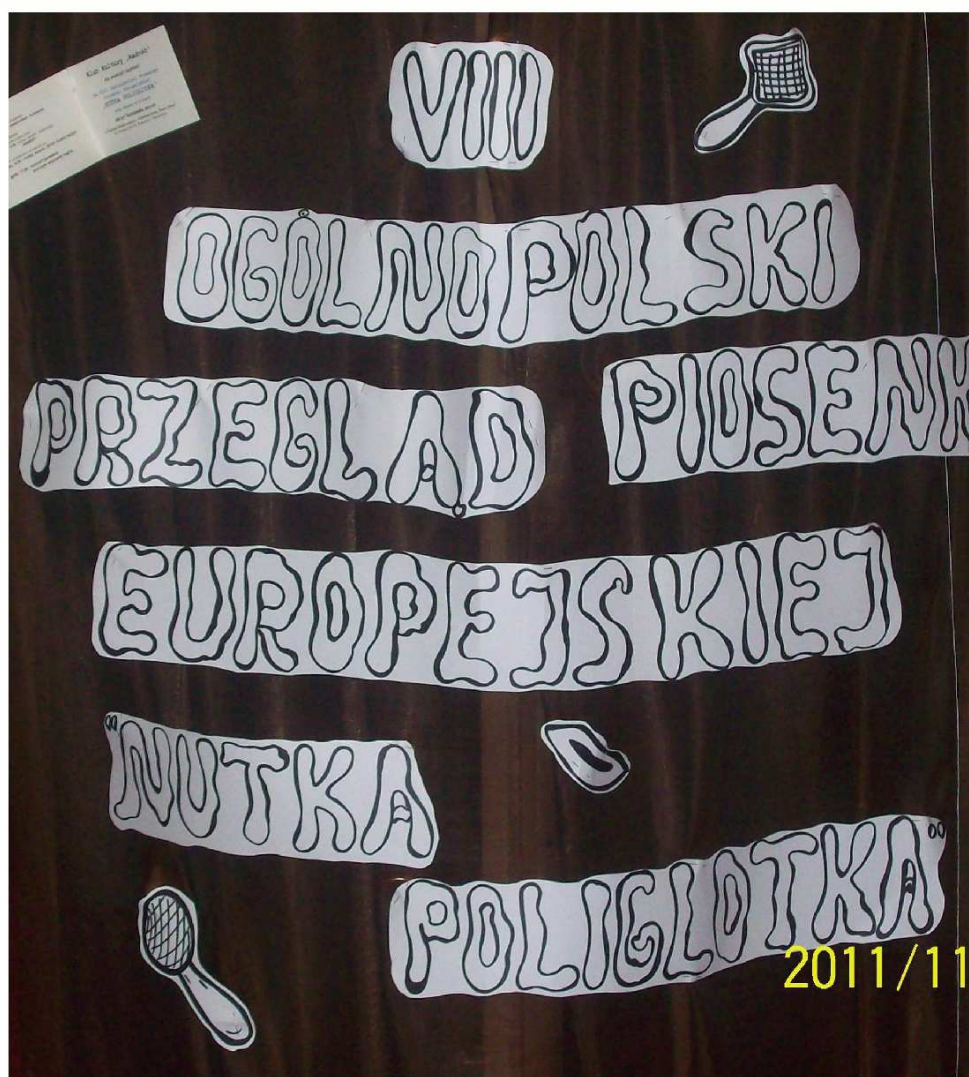 VIII
OGÓLNOPOLSKI
PRZEGLĄD PIOSENK
EUROPEJSKIEJ
"NUTKA
POLIGLOTKA"
2011/11